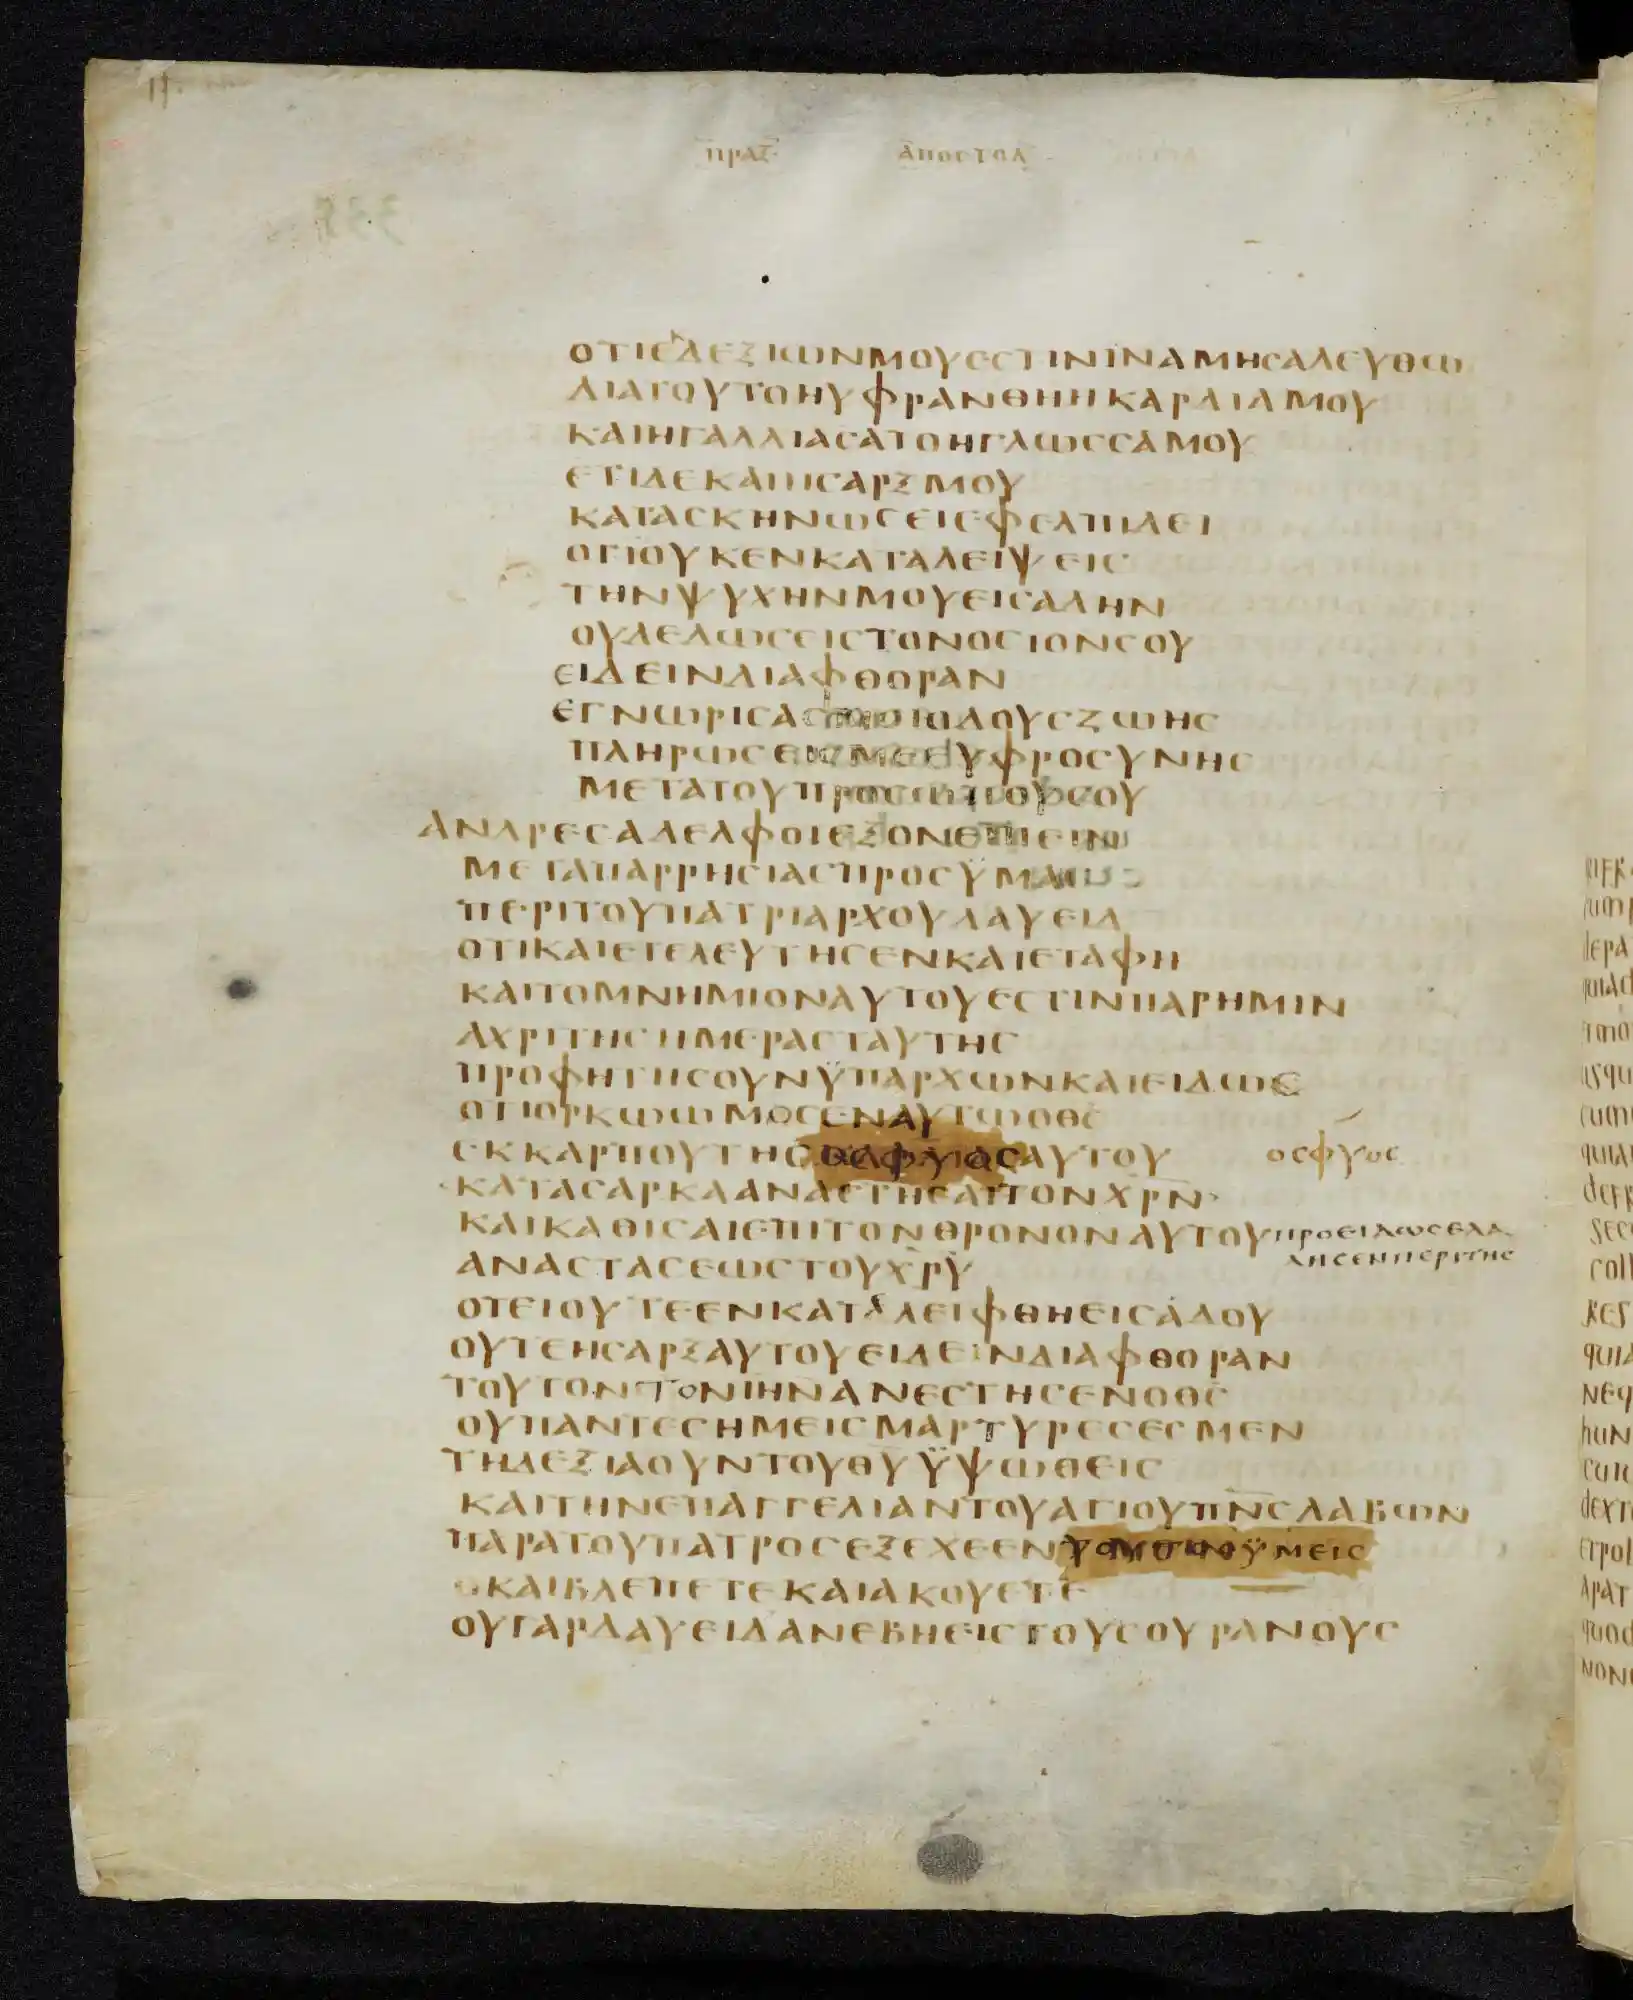 ΠΡΑΞ ΑΠΟСΤΟΛ
ΟΤΙΕΚΔΕΞΙΩΝΜΟΥΕСΤΙΝΪΝΑΜΗСΑΛΕΥΘΩ
ΔΙΑΤΟΥΤΟΗΥΦΡΑΝΘΗΗΚΑΡΔΙΑΜΟΥ
ΚΑΙΗΓΑΛΛΙΑСΑΤΟΗΓΛΩССΑΜΟΥ
ΕΤΙΔΕΚΑΙΗСΑΡΞΜΟΥ
ΚΑΤΑСΚΗΝΩСΕΙΕΦΕΛΠΙΔΕΙ
ΟΤΙΟΥΚΕΝΚΑΤΑΛΕΙΨΕΙС
ΤΗΝΨΥΧΗΝΜΟΥΕΙСΑΔΗΝ
ΟΥΔΕΔΩСΕΙСΤΟΝΟСΙΟΝСΟΥ
ΕΙΔΕΙΝΔΙΑΦΘΟΡΑΝ
ΕΓΝΩΡΙСΑСΜΟΙΟΔΟΥСΖΩΗС
ΠΛΗΡΩСΕΙСΜΕΕΥΦΡΟСΥΝΗС
ΜΕΤΑΤΟΥΠΡΟСΩΠΟΥСΟΥ
ΑΝΔΡΕСΑΔΕΛΦΟΙΕΞΟΝΕΙΠΕΙΝ
ΜΕΤΑΠΑΡΡΗСΙΑСΠΡΟСΫΜΑС
ΠΕΡΙΤΟΥΠΑΤΡΙΑΡΧΟΥΔΑΥΕΙΔ
ΟΤΙΚΑΙΕΤΕΛΕΥΤΗСΕΝΚΑΙΕΤΑΦΗ
ΚΑΙΤΟΜΝΗΜΙΟΝΑΥΤΟΥΕСΤΙΝΠΑΡΗΜΙΝ
ΑΧΡΙΤΗСΗΜΕΡΑСΤΑΥΤΗС
ΠΡΟΦΗΤΗСΟΥΝΫΠΑΡΧΩΝΚΑΙΕΙΔΩС
ΟΤΙΟΡΚΩΩΜΟСΕΝΑΥΤΩΟΘС
ΕΚΚΑΡΠΟΥΤΗС ΑΥΤΟΥ ΟСΦΥΟС
ΚΑΤΑСΑΡΚΑΑΝΑСΤΗСΑΙΤΟΝΧΡΝ
ΚΑΙΚΑΘΙСΑΙΕΠΙΤΟΝΘΡΟΝΟΝΑΥΤΟΥ ΠΡΟΕΙΔΩСΕΛΑ
ΛΗСΕΝΠΕΡΙΤΗС
ΑΝΑСΤΑСΕΩСΤΟΥΧΡΥ
ΟΤΕΙΟΥΤΕΕΝΚΑΤΑΛΕΙΦΘΗΕΙСΑΔΟΥ
ΟΥΤΕΗСΑΡΞΑΥΤΟΥΕΙΔΕΙΝΔΙΑΦΘΟΡΑΝ
ΤΟΥΤΟΝΤΟΝΙΗΝΑΝΕСΤΗСΕΝΟΘС
ΟΥΠΑΝΤΕСΗΜΕΙСΜΑΡΤΥΡΕСΕСΜΕΝ
ΤΗΔΕΞΙΑΟΥΝΤΟΥΘΥΫΨΩΘΕΙС
ΚΑΙΤΗΝΕΠΑΓΓΕΛΙΑΝΤΟΥΑΓΙΟΥΠΝСΛΑΒΩΝ
ΠΑΡΑΤΟΥΠΑΤΡΟСΕΞΕΧΕΕΝ ΫΜΕΙС
ΟΚΑΙΒΛΕΠΕΤΕΚΑΙΑΚΟΥΕΤΕ
ΟΥΓΑΡΔΑΥΕΙΔΑΝΕΒΗΕΙСΤΟΥСΟΥΡΑΝΟΥС